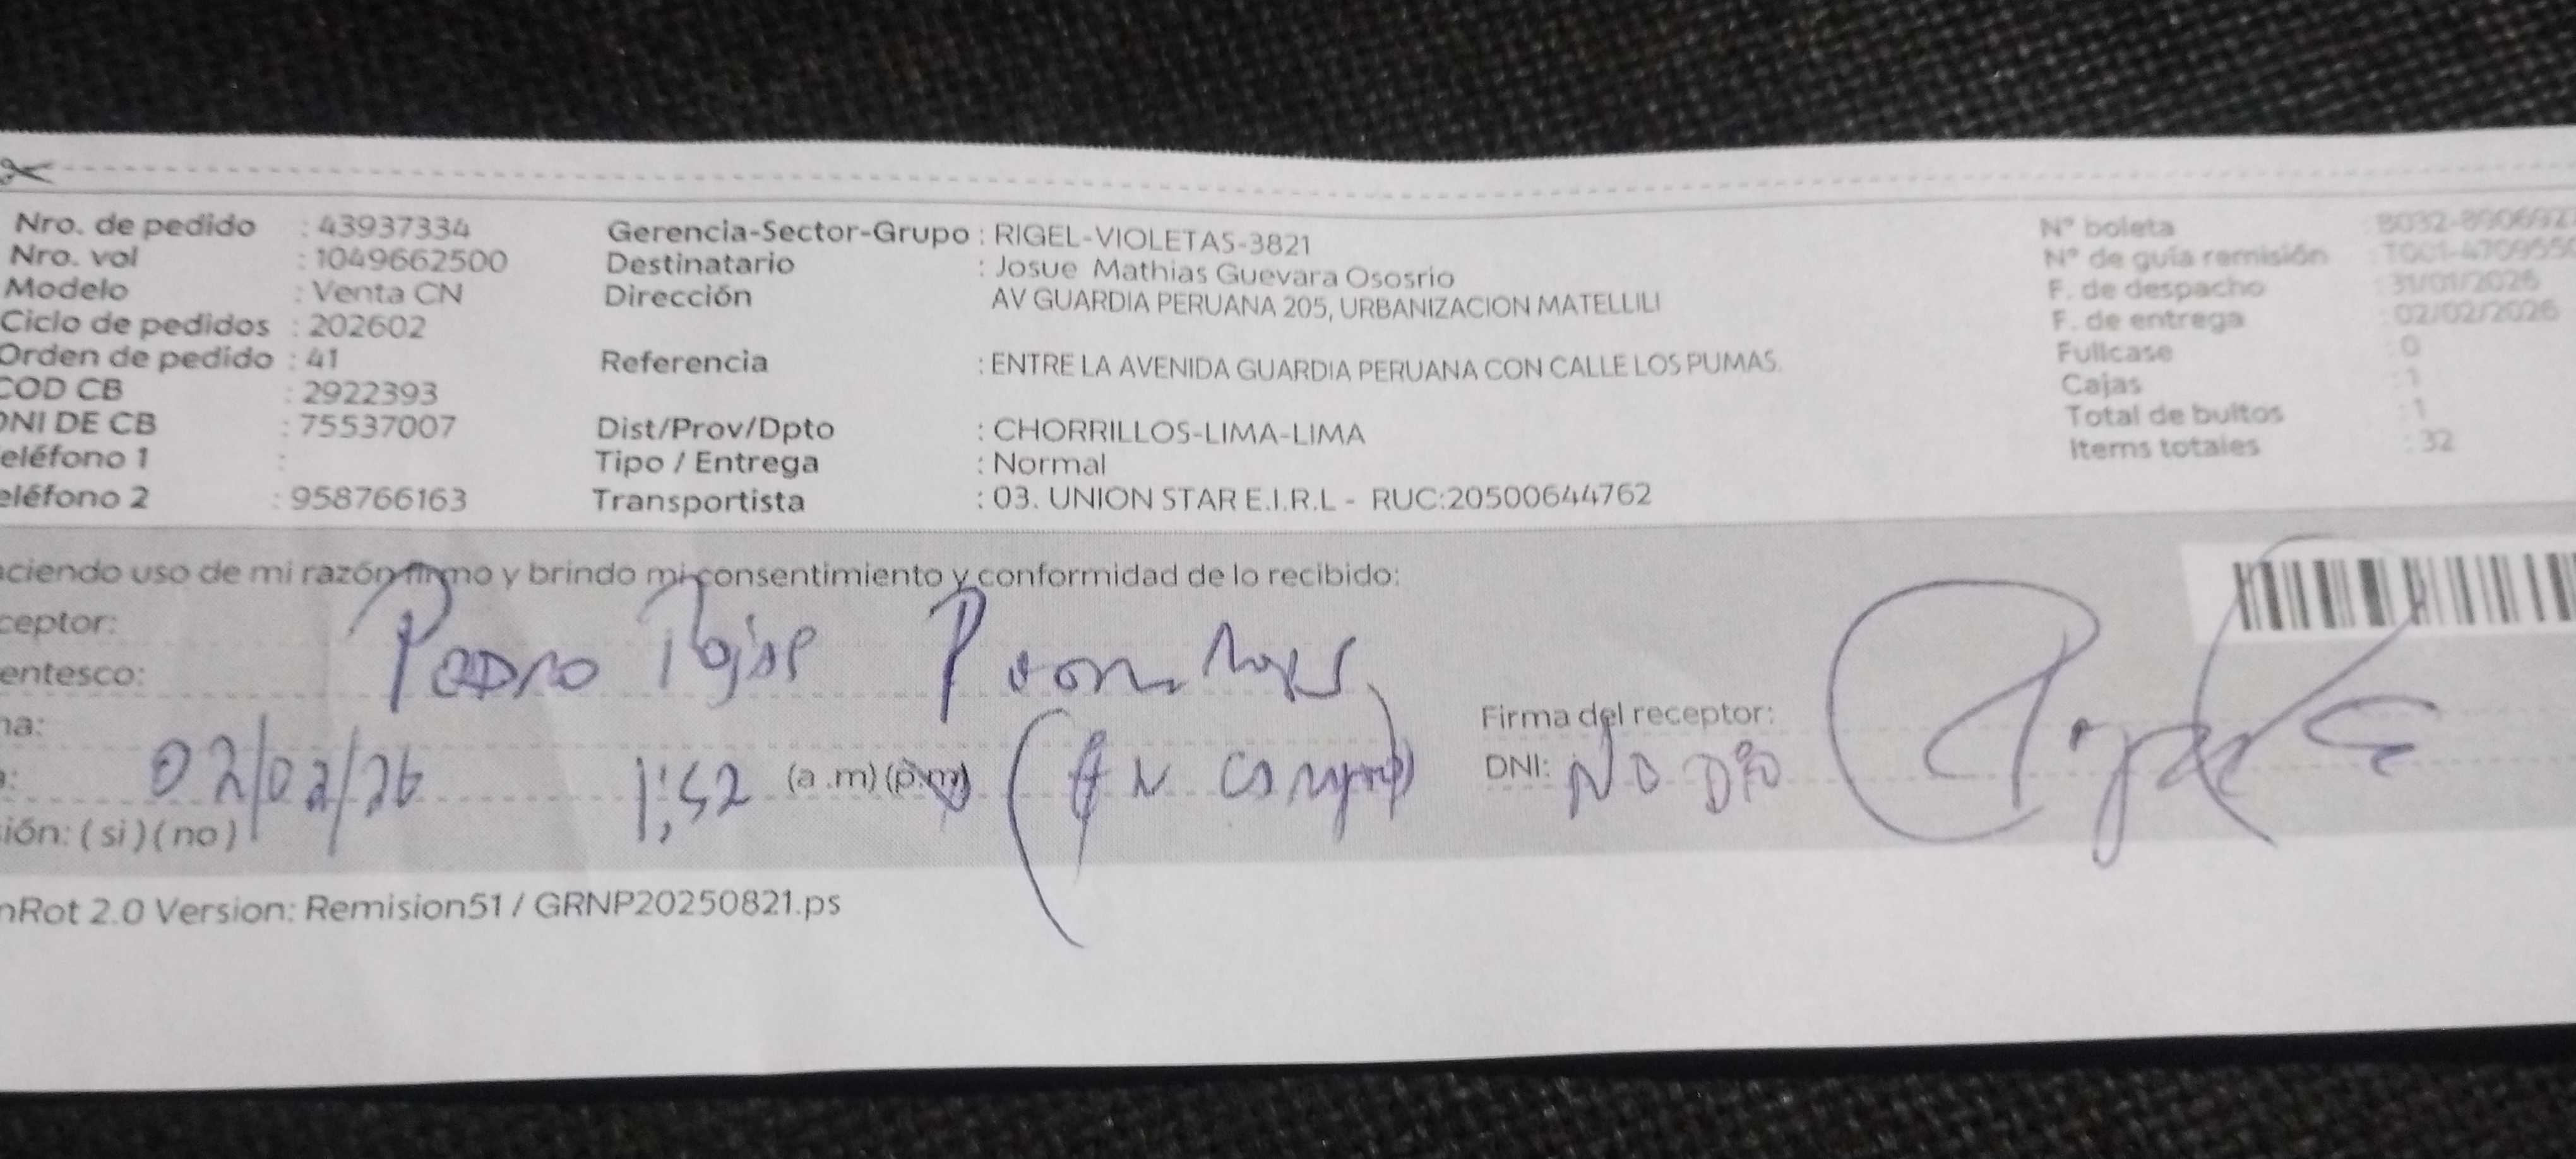 Nro. de pedido : 43937334 Gerencia-Sector-Grupo : RIGEL-VIOLETAS-3821 N° boleta : B032-890692
Nro. vol : 1049662500 Destinatario : Josue Mathias Guevara Ososrio N° de guía remisión : T001-470955
Modelo : Venta CN Dirección AV GUARDIA PERUANA 205, URBANIZACION MATELLILI F. de despacho : 31/01/2026
Ciclo de pedidos : 202602 F. de entrega : 02/02/2026
Orden de pedido : 41 Referencia : ENTRE LA AVENIDA GUARDIA PERUANA CON CALLE LOS PUMAS. Fullcase : 0
COD CB : 2922393 Cajas : 1
DNI DE CB : 75537007 Dist/Prov/Dpto : CHORRILLOS-LIMA-LIMA Total de bultos : 1
eléfono 1 : Tipo / Entrega : Normal Items totales : 32
eléfono 2 : 958766163 Transportista : 03. UNION STAR E.I.R.L - RUC:20500644762
aciendo uso de mi razón firmo y brindo mi consentimiento y conformidad de lo recibido:
ceptor:
entesco: Pedro Rojas
na: Firma del receptor:
02/02/26 1:52 (a.m)(p.m) DNI: NO DIO
ión: (si)(no)
nRot 2.0 Version: Remision51 / GRNP20250821.ps